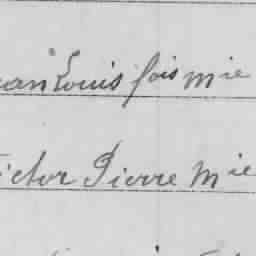 ean Louis fois Mie
ictor Pierre Mie